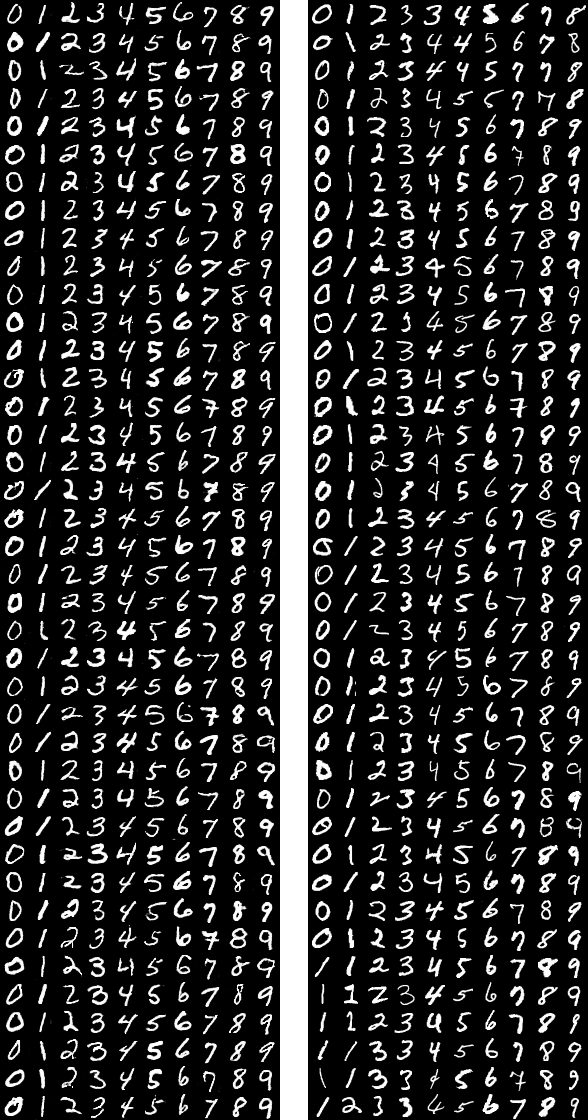 0 1 2 3 4 5 6 7 8 9
0 1 2 3 4 5 6 7 8 9
0 1 2 3 4 5 6 7 8 9
0 1 2 3 4 5 6 7 8 9
0 1 2 3 4 5 6 7 8 9
0 1 2 3 4 5 6 7 8 9
0 1 2 3 4 5 6 7 8 9
0 1 2 3 4 5 6 7 8 9
0 1 2 3 4 5 6 7 8 9
0 1 2 3 4 5 6 7 8 9
0 1 2 3 4 5 6 7 8 9
0 1 2 3 4 5 6 7 8 9
0 1 2 3 4 5 6 7 8 9
0 1 2 3 4 5 6 7 8 9
0 1 2 3 4 5 6 7 8 9
0 1 2 3 4 5 6 7 8 9
0 1 2 3 4 5 6 7 8 9
0 1 2 3 4 5 6 7 8 9
0 1 2 3 4 5 6 7 8 9
0 1 2 3 4 5 6 7 8 9
0 1 2 3 4 5 6 7 8 9
0 1 2 3 4 5 6 7 8 9
0 1 2 3 4 5 6 7 8 9
0 1 2 3 4 5 6 7 8 9
0 1 2 3 4 5 6 7 8 9
0 1 2 3 4 5 6 7 8 9
0 1 2 3 4 5 6 7 8 9
0 1 2 3 4 5 6 7 8 9
0 1 2 3 4 5 6 7 8 9
0 1 2 3 4 5 6 7 8 9
0 1 2 3 4 5 6 7 8 9
0 1 2 3 4 5 6 7 8 9
0 1 2 3 4 5 6 7 8 9
0 1 2 3 4 5 6 7 8 9
0 1 2 3 4 5 6 7 8 9
0 1 2 3 4 5 6 7 8 9
0 1 2 3 4 5 6 7 8 9
0 1 2 3 4 5 6 7 8 9
0 1 2 3 4 5 6 7 8 9
0 1 2 3 4 5 6 7 8 9
0 1 2 3 3 4 5 6 7 8
0 1 2 3 4 4 5 6 7 8
0 1 2 3 4 4 5 7 7 8
0 1 2 3 4 5 5 7 7 8
0 1 2 3 4 5 6 7 8 9
0 1 2 3 4 5 6 7 8 9
0 1 2 3 4 5 6 7 8 9
0 1 2 3 4 5 6 7 8 9
0 1 2 3 4 5 6 7 8 9
0 1 2 3 4 5 6 7 8 9
0 1 2 3 4 5 6 7 8 9
0 1 2 3 4 5 6 7 8 9
0 1 2 3 4 5 6 7 8 9
0 1 2 3 4 5 6 7 8 9
0 1 2 3 4 5 6 7 8 9
0 1 2 3 4 5 6 7 9 9
0 1 2 3 4 5 6 7 8 9
0 1 2 3 4 5 6 7 8 9
0 1 2 3 4 5 6 7 8 9
0 1 2 3 4 5 6 7 8 9
0 1 2 3 4 5 6 7 8 9
0 1 2 3 4 5 6 7 8 9
0 1 2 3 4 5 6 7 8 9
0 1 2 3 4 5 6 7 8 9
0 1 2 3 4 5 6 7 8 9
0 1 2 3 4 5 6 7 8 9
0 1 2 3 4 5 6 7 8 9
0 1 2 3 4 5 6 7 8 9
0 1 2 3 4 5 6 7 8 9
0 1 2 3 4 5 6 7 8 9
0 1 2 3 4 5 6 7 8 9
0 1 2 3 4 5 6 7 8 9
0 1 2 3 4 5 6 7 8 9
0 1 2 3 4 5 6 7 8 9
1 1 2 3 4 5 6 7 8 9
1 1 2 3 4 5 6 7 8 9
1 1 2 3 4 5 6 7 8 9
1 1 3 3 4 5 6 7 8 9
1 1 3 3 4 5 6 7 8 9
1 2 3 3 4 5 6 7 8 9